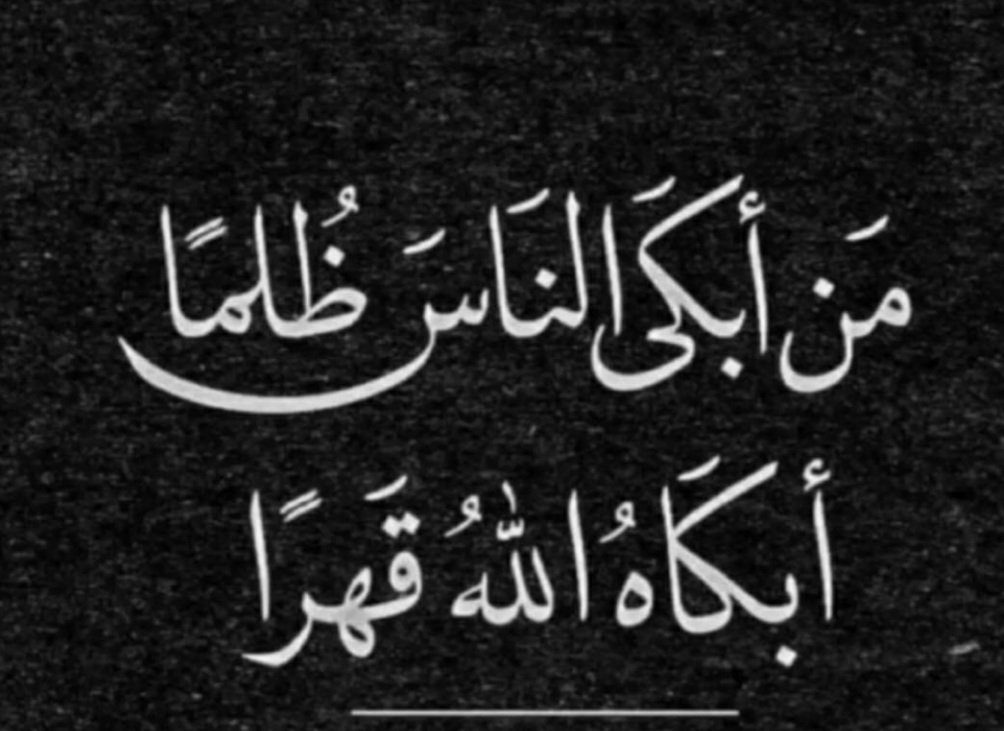 مَن أبكَى النَاسَ ظُلمًا
أبكَاهُ اللّٰهُ قَهرًا